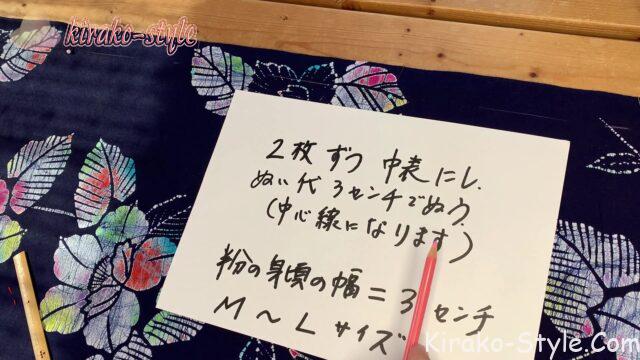 kirako-style
2枚ずつ中表にし、
ぬい代3センチでぬう。
(中心線になります)
粉の身頃の幅=3センチ
M〜Lサイズ
Kirako-Style.Com